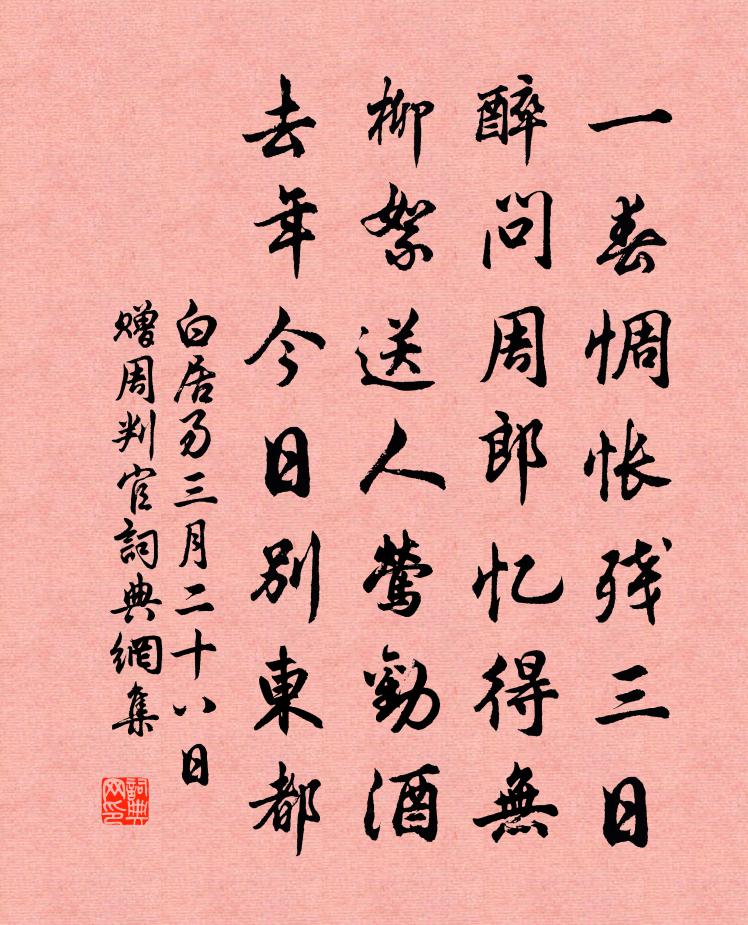 一春惆怅残三日
醉问周郎忆得無
柳絮送人莺勸酒
去年今日别東都
白居易三月二十八日
贈周判官詞典網集
詞典网印